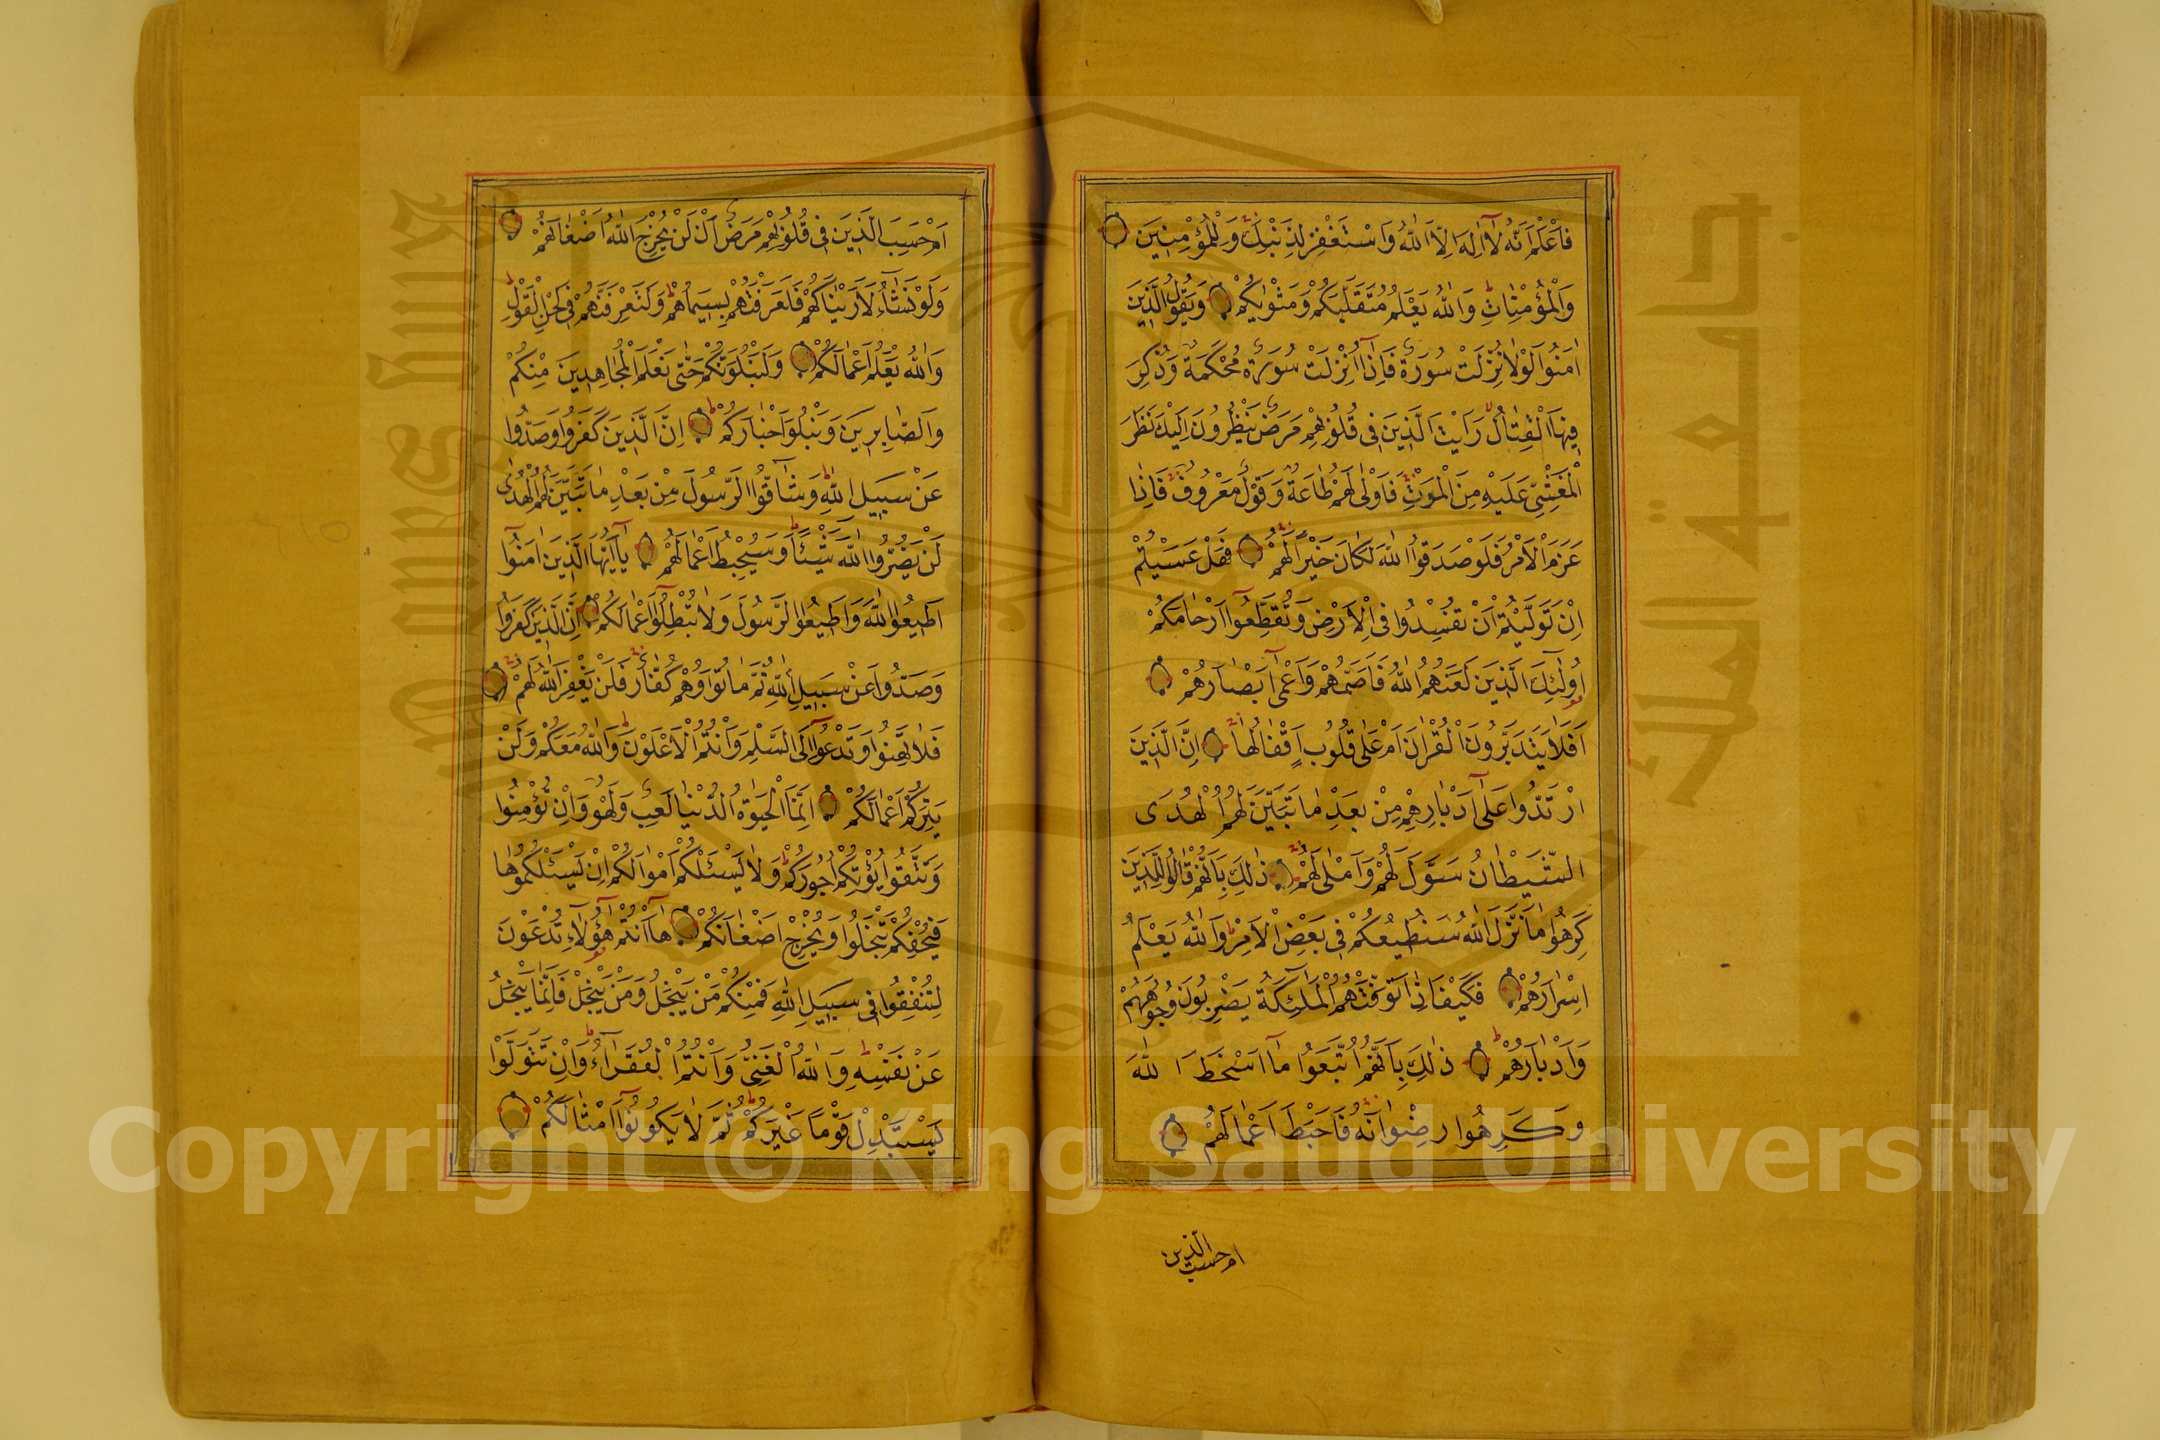 فَاعْلَمْ اَنَّهُ لَٓا اِلٰهَ اِلَّا اللّٰهُ وَاسْتَغْفِرْ لِذَنْبِكَ وَلِلْمُؤْمِنٖينَ
وَالْمُؤْمِنَاتِ وَاللّٰهُ يَعْلَمُ مُتَقَلَّبَكُمْ وَمَثْوٰيكُمْ وَيَقُولُ الَّذٖينَ
اٰمَنُوا لَوْلَا نُزِّلَتْ سُورَةٌ فَاِذَٓا اُنْزِلَتْ سُورَةٌ مُحْكَمَةٌ وَذُكِرَ
فٖيهَا الْقِتَالُ رَاَيْتَ الَّذٖينَ فٖى قُلُوبِهِمْ مَرَضٌ يَنْظُرُونَ اِلَيْكَ نَظَرَ
الْمَغْشِىِّ عَلَيْهِ مِنَ الْمَوْتِ فَاَوْلٰى لَهُمْ طَاعَةٌ وَقَوْلٌ مَعْرُوفٌ فَاِذَا
عَزَمَ الْاَمْرُ فَلَوْ صَدَقُوا اللّٰهَ لَكَانَ خَيْرًا لَهُمْ فَهَلْ عَسَيْتُمْ
اِنْ تَوَلَّيْتُمْ اَنْ تُفْسِدُوا فِى الْاَرْضِ وَتُقَطِّعُٓوا اَرْحَامَكُمْ
اُولٰٓئِكَ الَّذٖينَ لَعَنَهُمُ اللّٰهُ فَاَصَمَّهُمْ وَاَعْمٰٓى اَبْصَارَهُمْ
اَفَلَا يَتَدَبَّرُونَ الْقُرْاٰنَ اَمْ عَلٰى قُلُوبٍ اَقْفَالُهَا اِنَّ الَّذٖينَ
ارْتَدُّوا عَلٰٓى اَدْبَارِهِمْ مِنْ بَعْدِ مَا تَبَيَّنَ لَهُمُ الْهُدَى
الشَّيْطَانُ سَوَّلَ لَهُمْ وَاَمْلٰى لَهُمْ ذٰلِكَ بِاَنَّهُمْ قَالُوا لِلَّذٖينَ
كَرِهُوا مَا نَزَّلَ اللّٰهُ سَنُطٖيعُكُمْ فٖى بَعْضِ الْاَمْرِ وَاللّٰهُ يَعْلَمُ
اِسْرَارَهُمْ فَكَيْفَ اِذَا تَوَفَّتْهُمُ الْمَلٰٓئِكَةُ يَضْرِبُونَ وُجُوهَهُمْ
وَاَدْبَارَهُمْ ذٰلِكَ بِاَنَّهُمُ اتَّبَعُوا مَٓا اَسْخَطَ اللّٰهَ
وَكَرِهُوا رِضْوَانَهُ فَاَحْبَطَ اَعْمَالَهُمْ
ام حسب الذين
اَمْ حَسِبَ الَّذٖينَ فٖى قُلُوبِهِمْ مَرَضٌ اَنْ لَنْ يُخْرِجَ اللّٰهُ اَضْغَانَهُمْ
وَلَوْ نَشَٓاءُ لَاَرَيْنَاكَهُمْ فَلَعَرَفْتَهُمْ بِسٖيمٰيهُمْ وَلَتَعْرِفَنَّهُمْ فٖى لَحْنِ الْقَوْلِ
وَاللّٰهُ يَعْلَمُ اَعْمَالَكُمْ وَلَنَبْلُوَنَّكُمْ حَتّٰى نَعْلَمَ الْمُجَاهِدٖينَ مِنْكُمْ
وَالصَّابِرٖينَ وَنَبْلُوَا اَخْبَارَكُمْ اِنَّ الَّذٖينَ كَفَرُوا وَصَدُّوا
عَنْ سَبٖيلِ اللّٰهِ وَشَٓاقُّوا الرَّسُولَ مِنْ بَعْدِ مَا تَبَيَّنَ لَهُمُ الْهُدٰى
لَنْ يَضُرُّوا اللّٰهَ شَيْئًا وَسَيُحْبِطُ اَعْمَالَهُمْ يَٓا اَيُّهَا الَّذٖينَ اٰمَنُٓوا
اَطٖيعُوا اللّٰهَ وَاَطٖيعُوا الرَّسُولَ وَلَا تُبْطِلُٓوا اَعْمَالَكُمْ اِنَّ الَّذٖينَ كَفَرُوا
وَصَدُّوا عَنْ سَبٖيلِ اللّٰهِ ثُمَّ مَاتُوا وَهُمْ كُفَّارٌ فَلَنْ يَغْفِرَ اللّٰهُ لَهُمْ
فَلَا تَهِنُوا وَتَدْعُٓوا اِلَى السَّلْمِ وَاَنْتُمُ الْاَعْلَوْنَ وَاللّٰهُ مَعَكُمْ وَلَنْ
يَتِرَكُمْ اَعْمَالَكُمْ اِنَّمَا الْحَيٰوةُ الدُّنْيَا لَعِبٌ وَلَهْوٌ وَاِنْ تُؤْمِنُوا
وَتَتَّقُوا يُؤْتِكُمْ اُجُورَكُمْ وَلَا يَسْـَٔلْكُمْ اَمْوَالَكُمْ اِنْ يَسْـَٔلْكُمُوهَا
فَيُحْفِكُمْ تَبْخَلُوا وَيُخْرِجْ اَضْغَانَكُمْ هَٓا اَنْتُمْ هٰٓؤُلَٓاءِ تُدْعَوْنَ
لِتُنْفِقُوا فٖى سَبٖيلِ اللّٰهِ فَمِنْكُمْ مَنْ يَبْخَلُ وَمَنْ يَبْخَلْ فَاِنَّمَا يَبْخَلُ
عَنْ نَفْسِهٖ وَاللّٰهُ الْغَنِىُّ وَاَنْتُمُ الْفُقَرَٓاءُ وَاِنْ تَتَوَلَّوْا
يَسْتَبْدِلْ قَوْمًا غَيْرَكُمْ ثُمَّ لَا يَكُونُٓوا اَمْثَالَكُمْ
King Saud University
جامعة الملك سعود
1957
Copyright © King Saud University